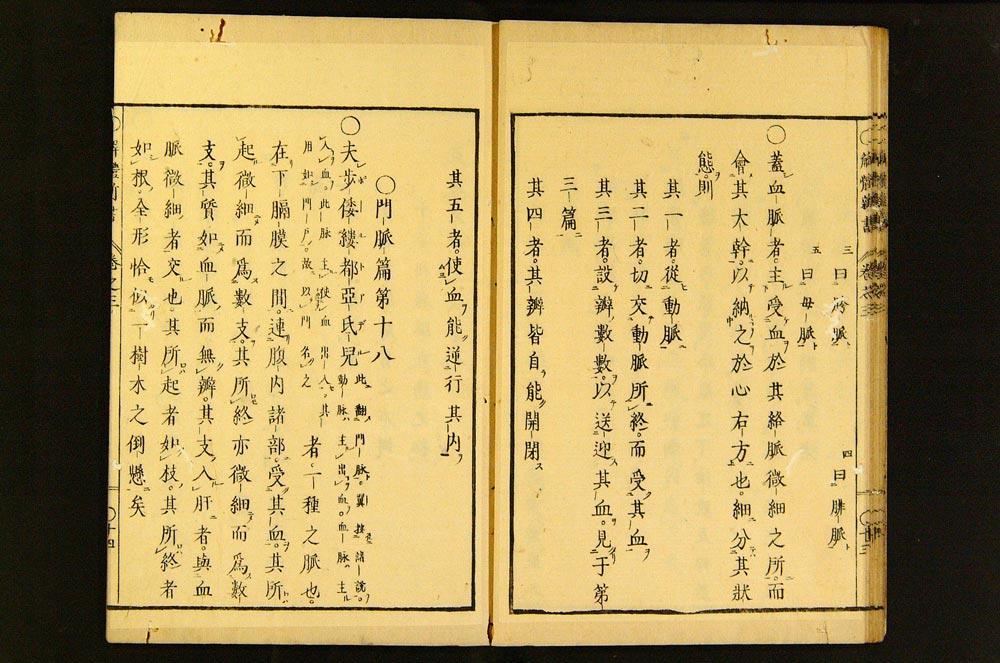 解體新書 卷之三 ○十三
三曰胻脈 四曰腓脈
五曰母脈
○蓋血脈者。主受血於其絡脈微細之所。而
會其大幹。以納之於心右方也。細分其狀
態。則
其一者。從動脈
其二者。切交動脈所終。而受其血
其三者。設瓣數數。以送迎其血。見于第
三篇
其四者。其瓣皆自能開閉
其五者。使血能逆行其内
○門脈篇第十八
○夫歩倭縷都亞氐兒此翻門脈。翼按諸説。
動脈主出血。血脈主
入血。此脈主使血出入。其
用如門戸。故以門名之
者。一種之脈也。
在下膈膜之間。連腹内諸部。受其血。其所
起微細而爲數支。其所終亦微細而爲數
支。其質如血脈而無瓣。其支入肝者。與血
脈微細者交也。其所起者如枝。其所終者
如根。全形恰似一樹木之倒懸矣
解體新書 卷之三 ○十四